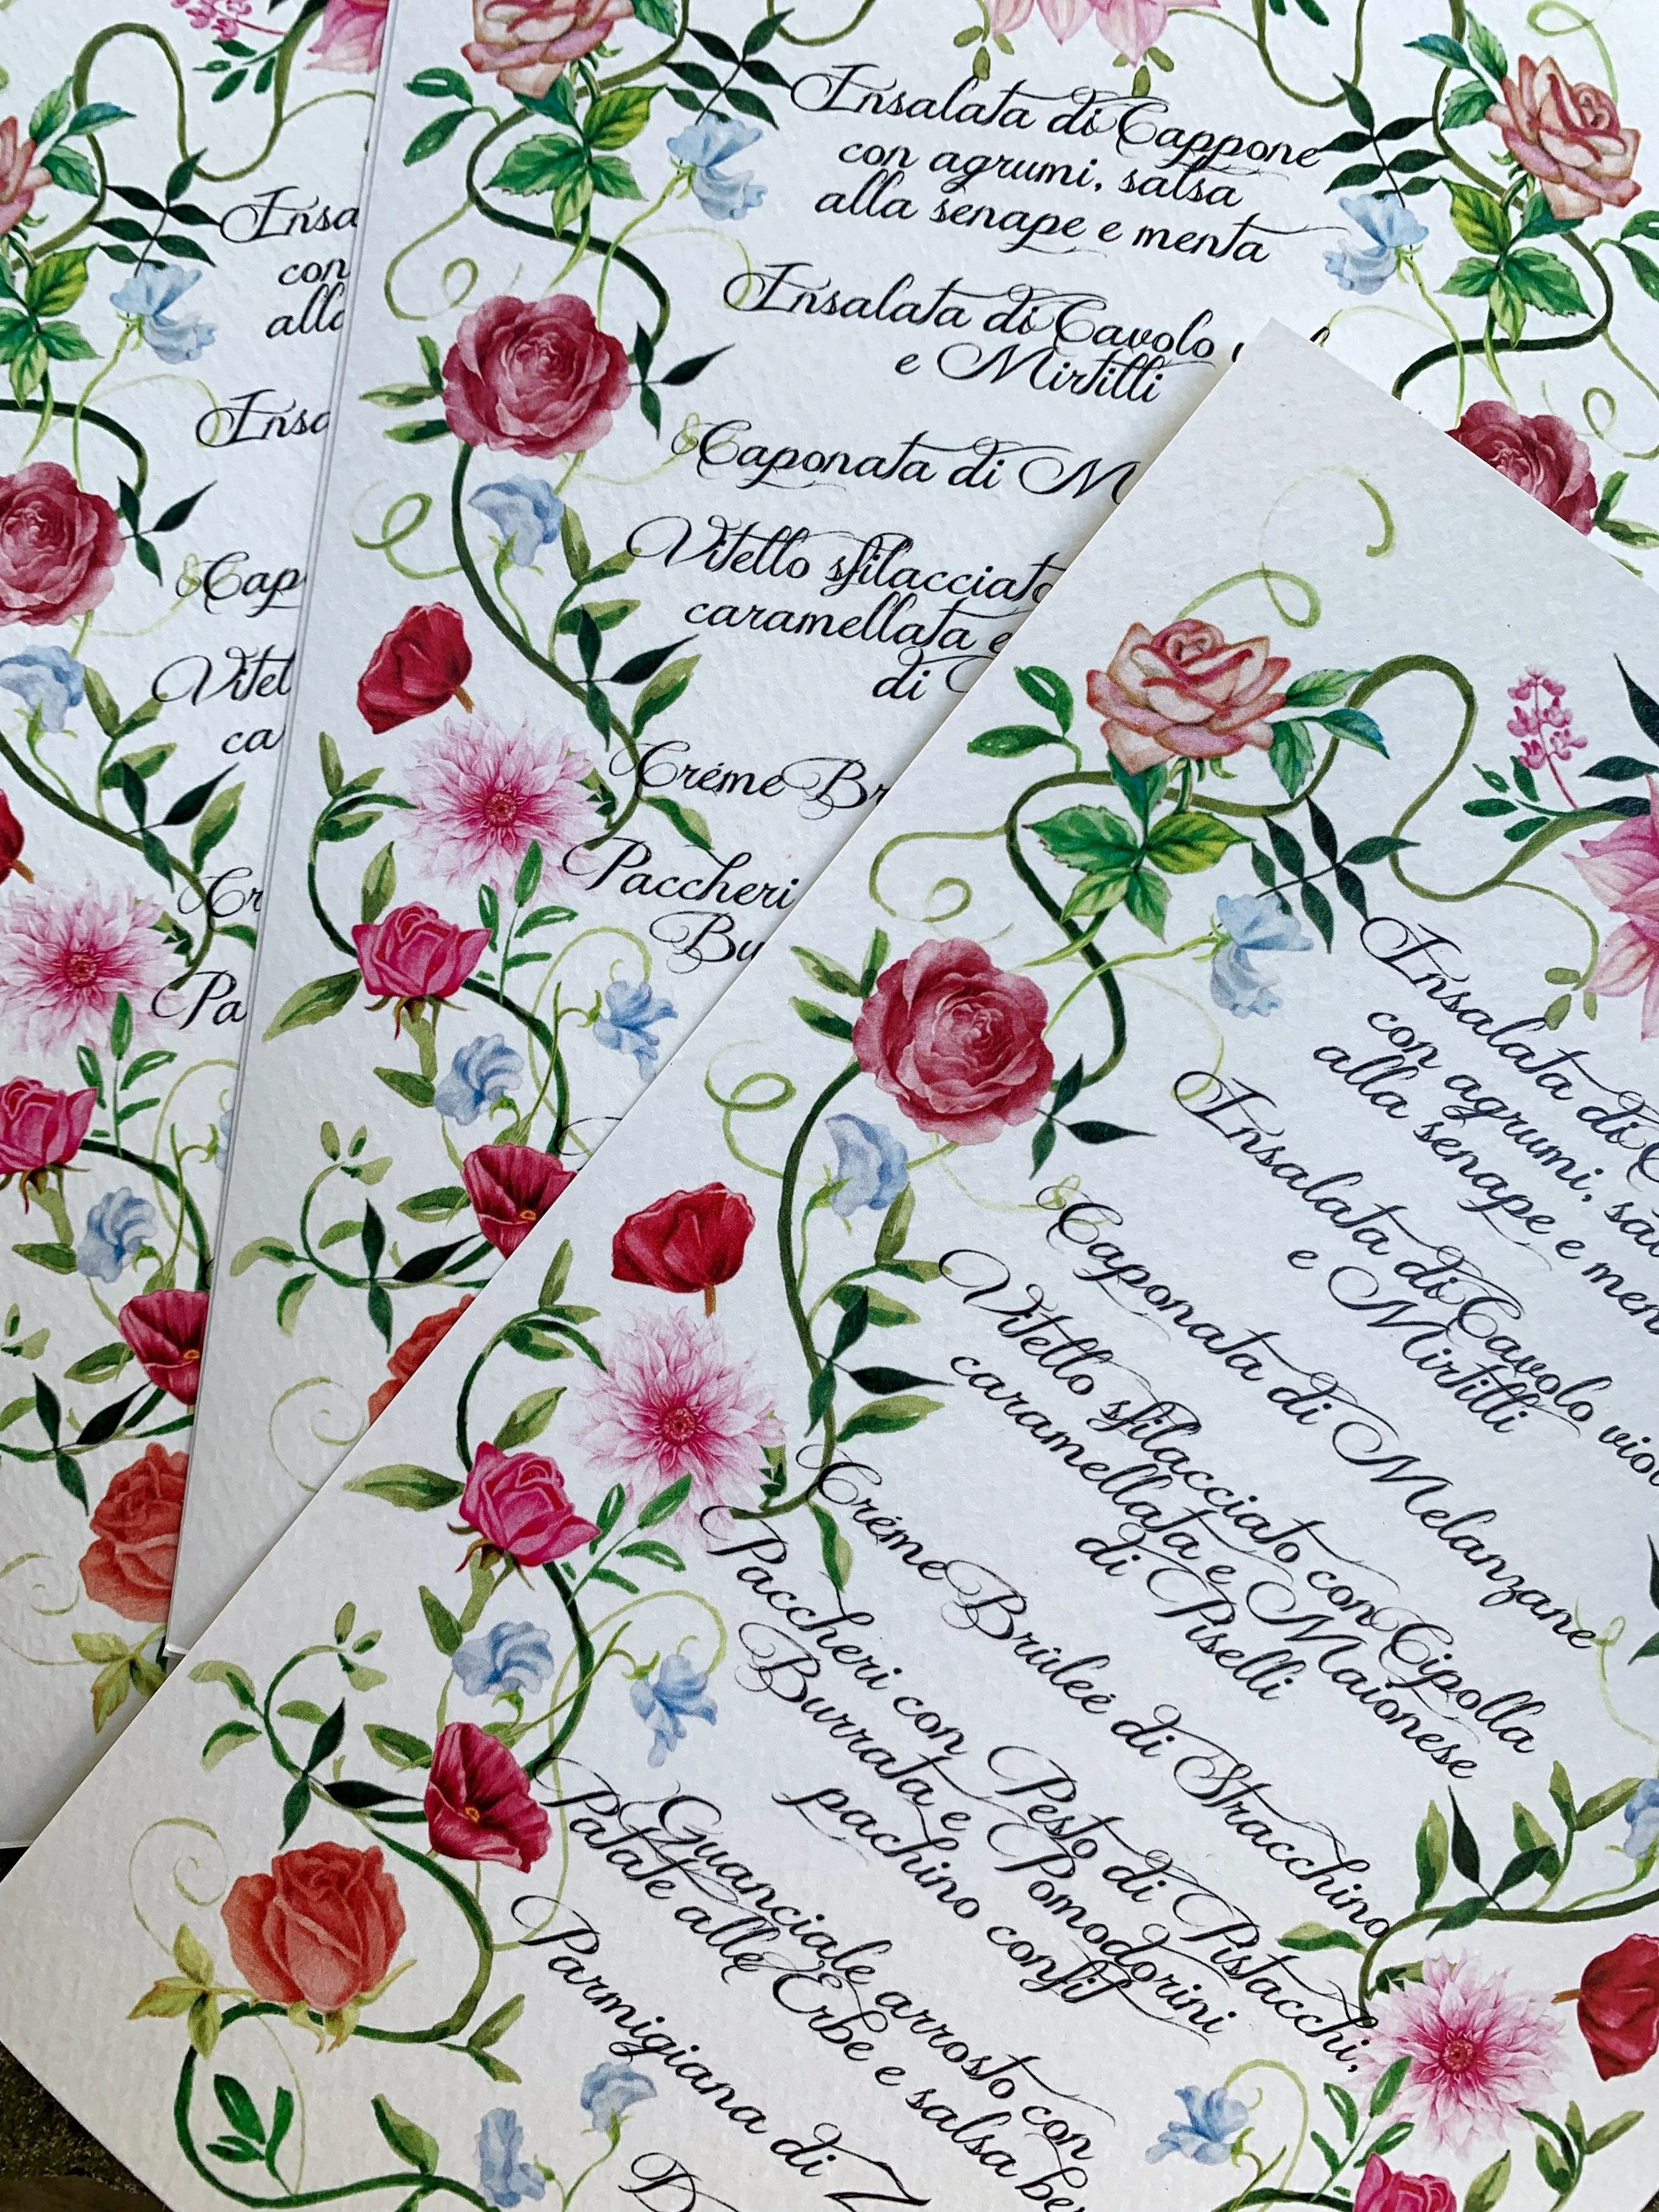 Insa
con
alla
Insa
Cap
Vitel
ca
Cr
Pa
Insalata di Cappone
con agrumi, salsa
alla senape e menta
Insalata di Cavolo
e Mirtilli
Caponata di M
Vitello sfilacciato
caramellata e
di
Créme Br
Paccheri
Bu
Insalata di C
con agrumi, sal
alla senape e men
Insalata di Cavolo viol
e Mirtilli
Caponata di Melanzane
Vitello sfilacciato con Cipolla
caramellata e Maionese
di Piselli
Créme Brüleé di Stracchino
Paccheri con Pesto di Pistacchi,
Burrata e Pomodorini
pachino confit
Guanciale arrosto con
Patate alle Erbe e salsa be
Parmigiana di Z
D